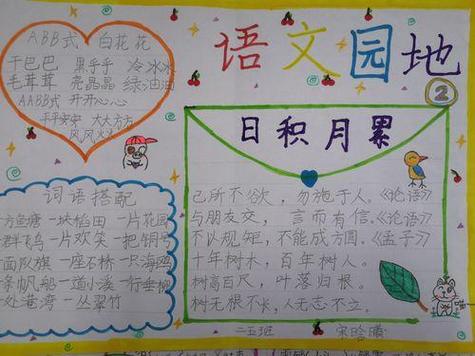 ABB式 白花花
干巴巴 黑乎乎 冷冰冰
毛茸茸 亮晶晶 绿油油
AABB式 开开心心
平平安安 大大方方
风风火火
语文园地
②
日积月累
己所不欲，勿施于人。《论语》
与朋友交，言而有信。《论语》
不以规矩，不能成方圆。《孟子》
十年树木，百年树人。
树高百尺，叶落归根。
树无根不长，人无志不立。
词语搭配
方鱼塘 一块稻田 一片花园
群飞鸟 一片欢笑 一把铜号
面队旗 一座石桥 一只海鸥
条帆船 一道小溪 一行垂柳
处港湾 一丛翠竹
二五班 宋晗曦